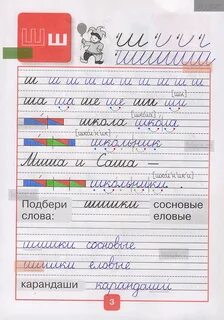 Ш ш Ш и и и
ш ш ш ш ш ш ш
ш ш ш ш ш ш ш ш ш ш
[шы]
ша ша ше ше ши ши
[шко́ла]
школа школа
[шко́л'н'ик]
школьник
Миша и Саша —
[шко́л'н'ик'и]
школьники.
Подбери шишки сосновые
слова: еловые
шишки сосновые
шишки еловые
карандаши карандаши
3